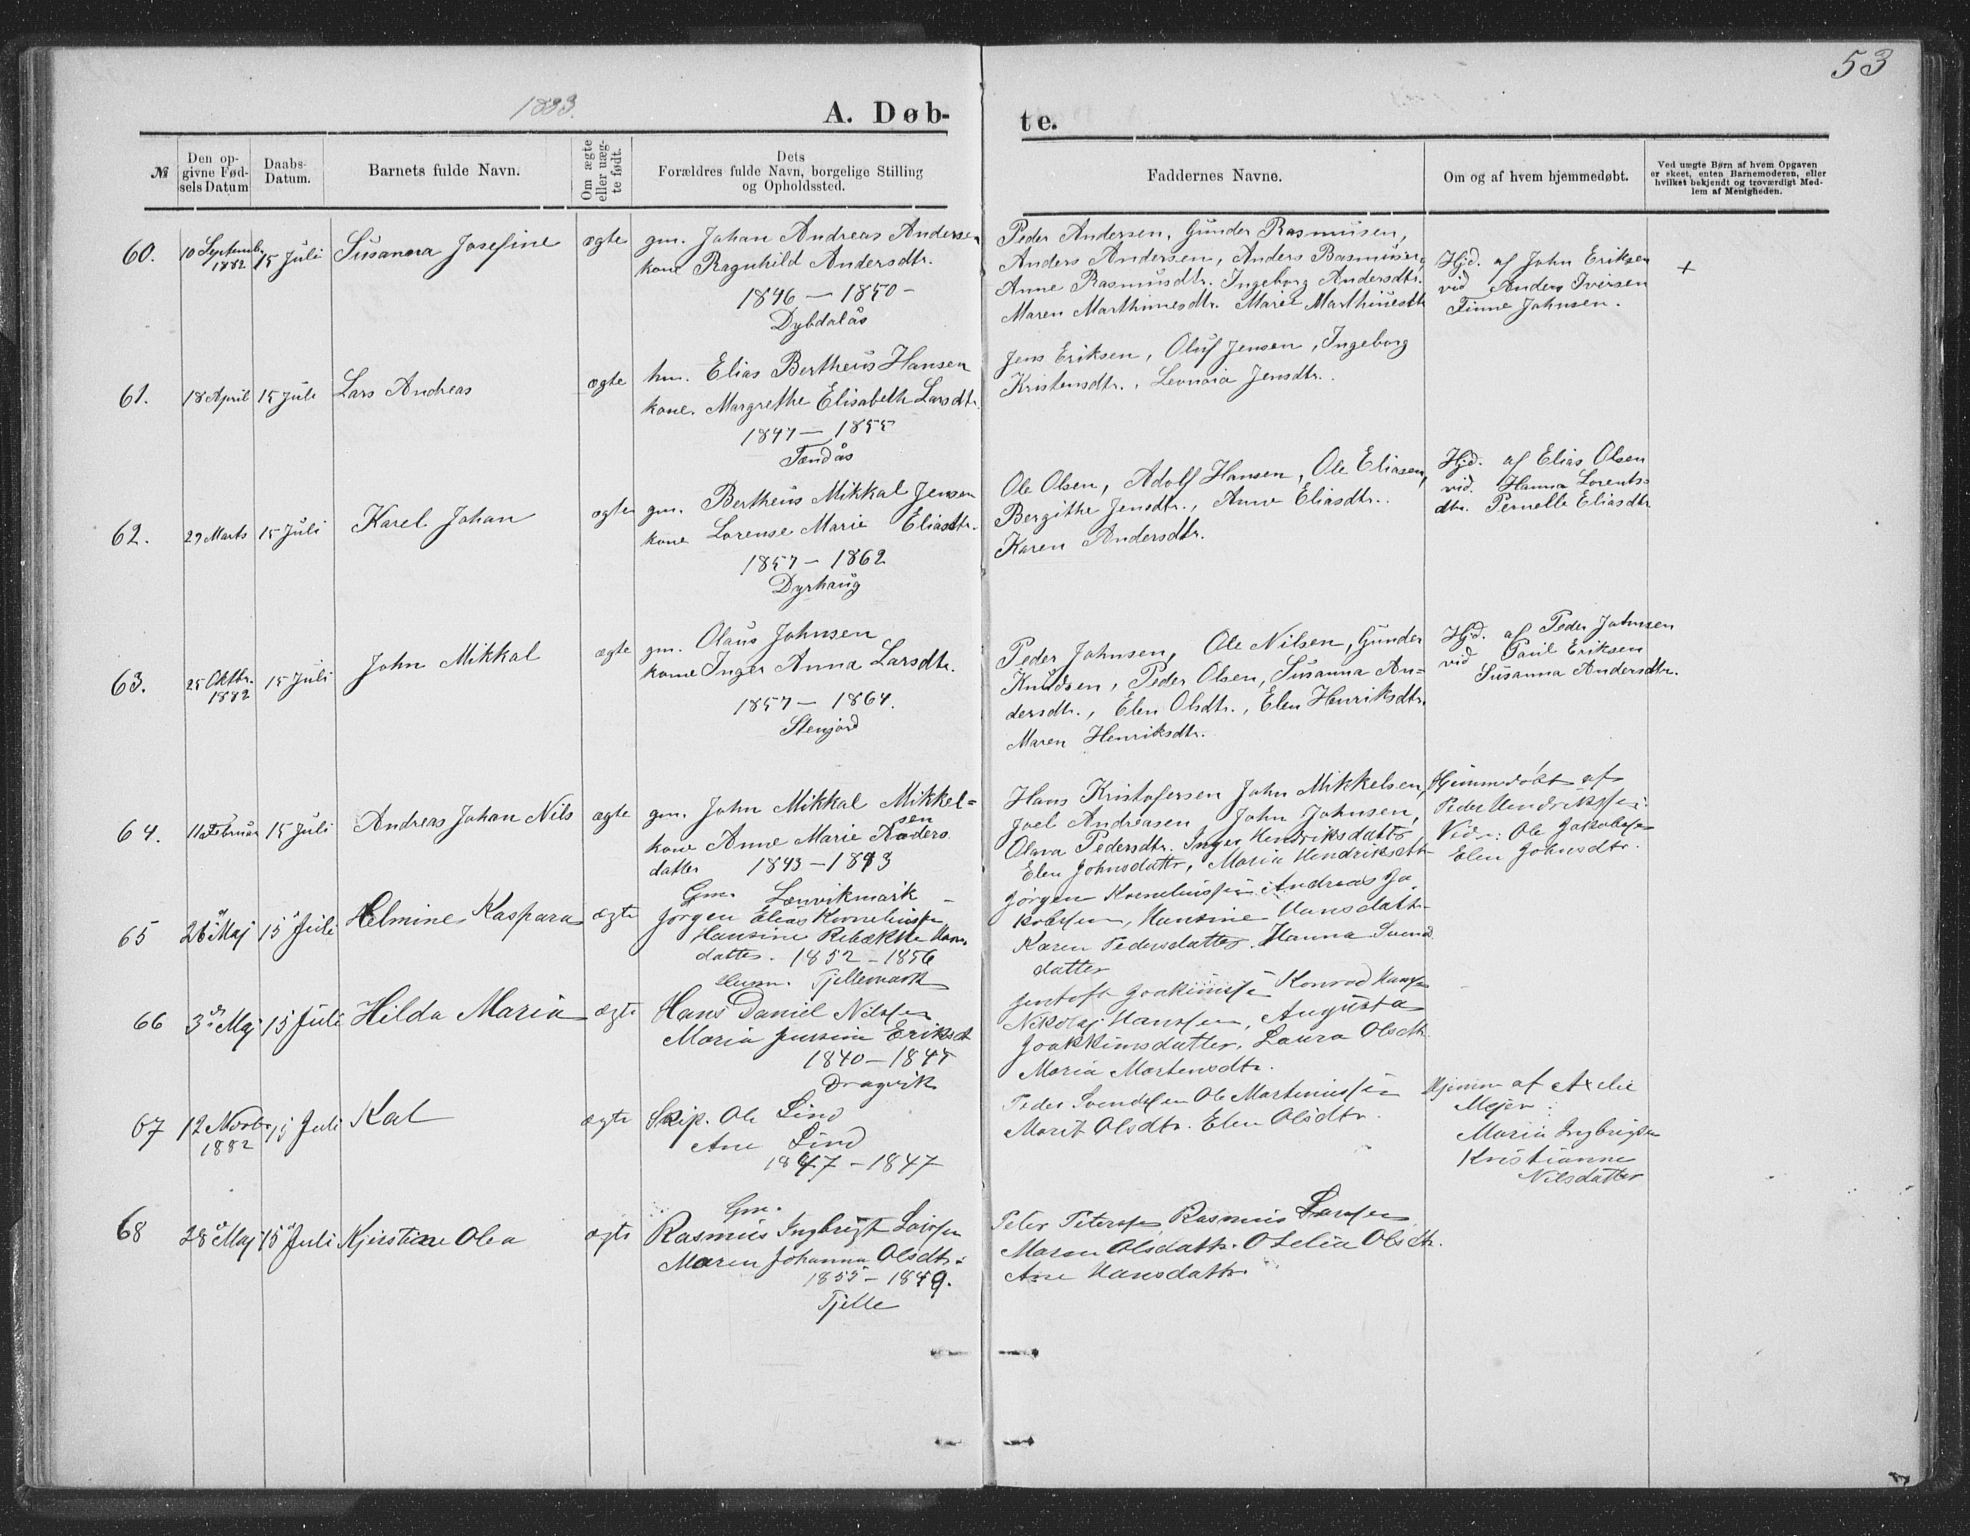 53
1883.
A. Døb-
te.
№
Den op-
givne Fød-
sels Datum
Daabs-
Datum.
Barnets fulde Navn.
Om ægte
eller uæg-
te født.
Dets
Forældres fulde Navn, borgelige Stilling
og Opholdssted.
Faddernes Navne.
Om og af hvem hjemmedøbt.
Ved uægte Børn af hvem Opgaven
er skeet, enten Barnemoderen, eller
hvilket bekjendt og troværdigt Med-
lem af Menigheden.
60.
10 Septembr
1882
15 Juli
Susanna Josefine
ægte
gm. Johan Andreas Andersen
kone Ragnhild Andersdtr.
1846 — 1850 -
Dybdalås
Peder Andersen, Gunder Rasmusen,
Anders Andersen, Anders Rasmusen,
Anne Rasmusdtr. Ingeborg Andersdtr.
Maren Marthinesdtr. Marie Marthinesdtr
Hjd. af John Eriksen
vid Anders Iversen
Finne Johnsen.
+
61.
18 April
15 Juli
Lars Andreas
ægte
hm. Elias Bertheus Hansen
kone. Margrethe Elisabeth Larsdtr.
1847 — 1855
Tendås
Jens Eriksen, Oluf Jensen, Ingeborg
Kristensdtr., Jensdtr.
62.
29 Marts
15 Juli
Karel Johan
ægte
gm. Bertheus Mikkal Jensen
kone Lorense Marie Eliasdtr.
1857 — 1862
Dyrhaug
Ole Olsen, Adolf Hansen, Ole Eliasen,
Bergithe Jensdtr., Anne Eliasdtr.
Karen Andersdtr.
Hjd. af Elias Olsen
vid. Hanna Lorents-
dtr. Pernelle Eliasdtr
63.
25 Oktbr.
1882
15 Juli
John Mikkal
ægte
gm. Olaus Johnsen
kone Inger Anna Larsdtr.
1857 — 1864.
Stenjord
Peder Johnsen, Ole Nilsen, Gunder
Knudsen, Peder Olsen, Susanna An-
dersdtr., Elen Olsdtr., Elen Henriksdtr.
Maren Henriksdtr.
Hjd. af Peder Johnsen
vid Paul Eriksen
Susanna Andersdtr.
64.
11 Februar
15 Juli
Andreas Johan Nils
ægte
gm. John Mikkal Mikkel-
sen
kone Anne Marie Anders
datter 1843 — 1843
Lenvikmark
Hans Kristofersen John Mikkelsen,
Joel Andreasen, John Johnsen,
Olava Pedersdtr. Inger Hendriksdatter
Elen Johnsdatter, Maria Hendriksdtr
Hjemmedøbt af
Peder Hendrikssen.
Vidn: Ole Jakobsen
Elen Johnsdtr.
65
26 Maj
15 Juli
Helmine Kaspara
ægte
Gm.
Jørgen Elias Kornelius
Hansine Rebække Hans
datter. 1852 – 1856
Husm. Tjellemark
Jørgen Korneliussen Andreas Ja
kobsen, Hansine Hansdattr
Karen Pedersdatter. Hanna Svend
datter
66
3 Maj
15 Juli
Hilda Maria
ægte
Hans Daniel Nilsen
Maria Eriksdt
1840 — 1845
Dragvik
Jentoft Joakimsen Konrad Hansen
Nikolaj Hanssen, Augusta
Joakkimsdatter. Laura Olsdtr.
Maria Mortensdtr.
67
12 Novbr
1882
15 Juli
Kal
ægte
Skip. Ole Lind
Ane Lind
1847 — 1847
Peder Svendsen Ole Martinussen
Marit Olsdtr. Elen Olsdtr.
Hjemm af Axelie
Mejer:
Maria Ingbrigtsn
Kristianne
Nilsdatter
68
28 Maj
15 Juli
Kjerstine Olea
ægte
Gm.
Rasmus Ingbrigt Larssen
Maren Johanna Olsdtr.
1855 – 1849.
Tjelle
Peter Petersen, Rasmus Larssen
Maren Olsdattr. Otelia Olsdtr.
Ane Hansdattr